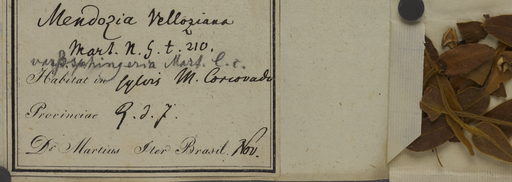 Mendozia Velloziana
Mart. N. G. t. 210.
Mart. l. c.
Habitat in sylvis M. Corcovado
Provinciae R. d. J.
Dr. Martius Iter Brasil. Nov.